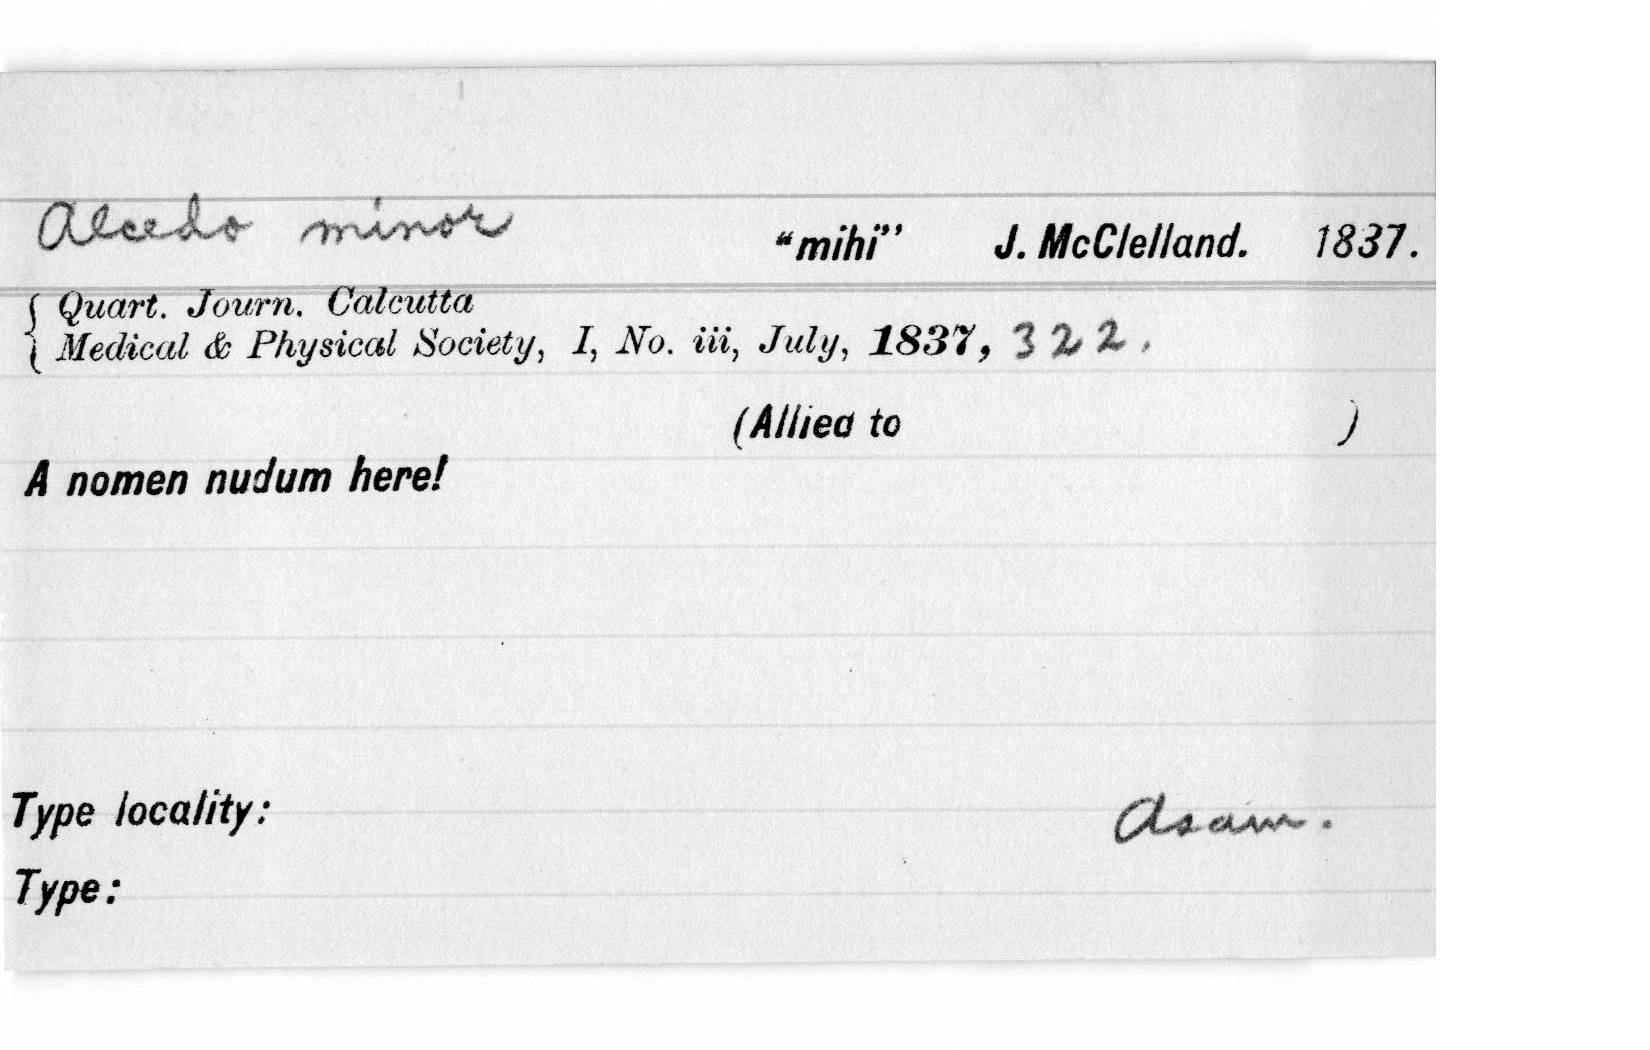 Alcedo minor "mihi" J. McClelland. 1837.
{ Quart. Journn. Calcutta
Medical & Physical Society, I, No. iii, July, 1837, 322.
(Allied to )
A nomen nudum here!
Type locality: Asam.
Type: